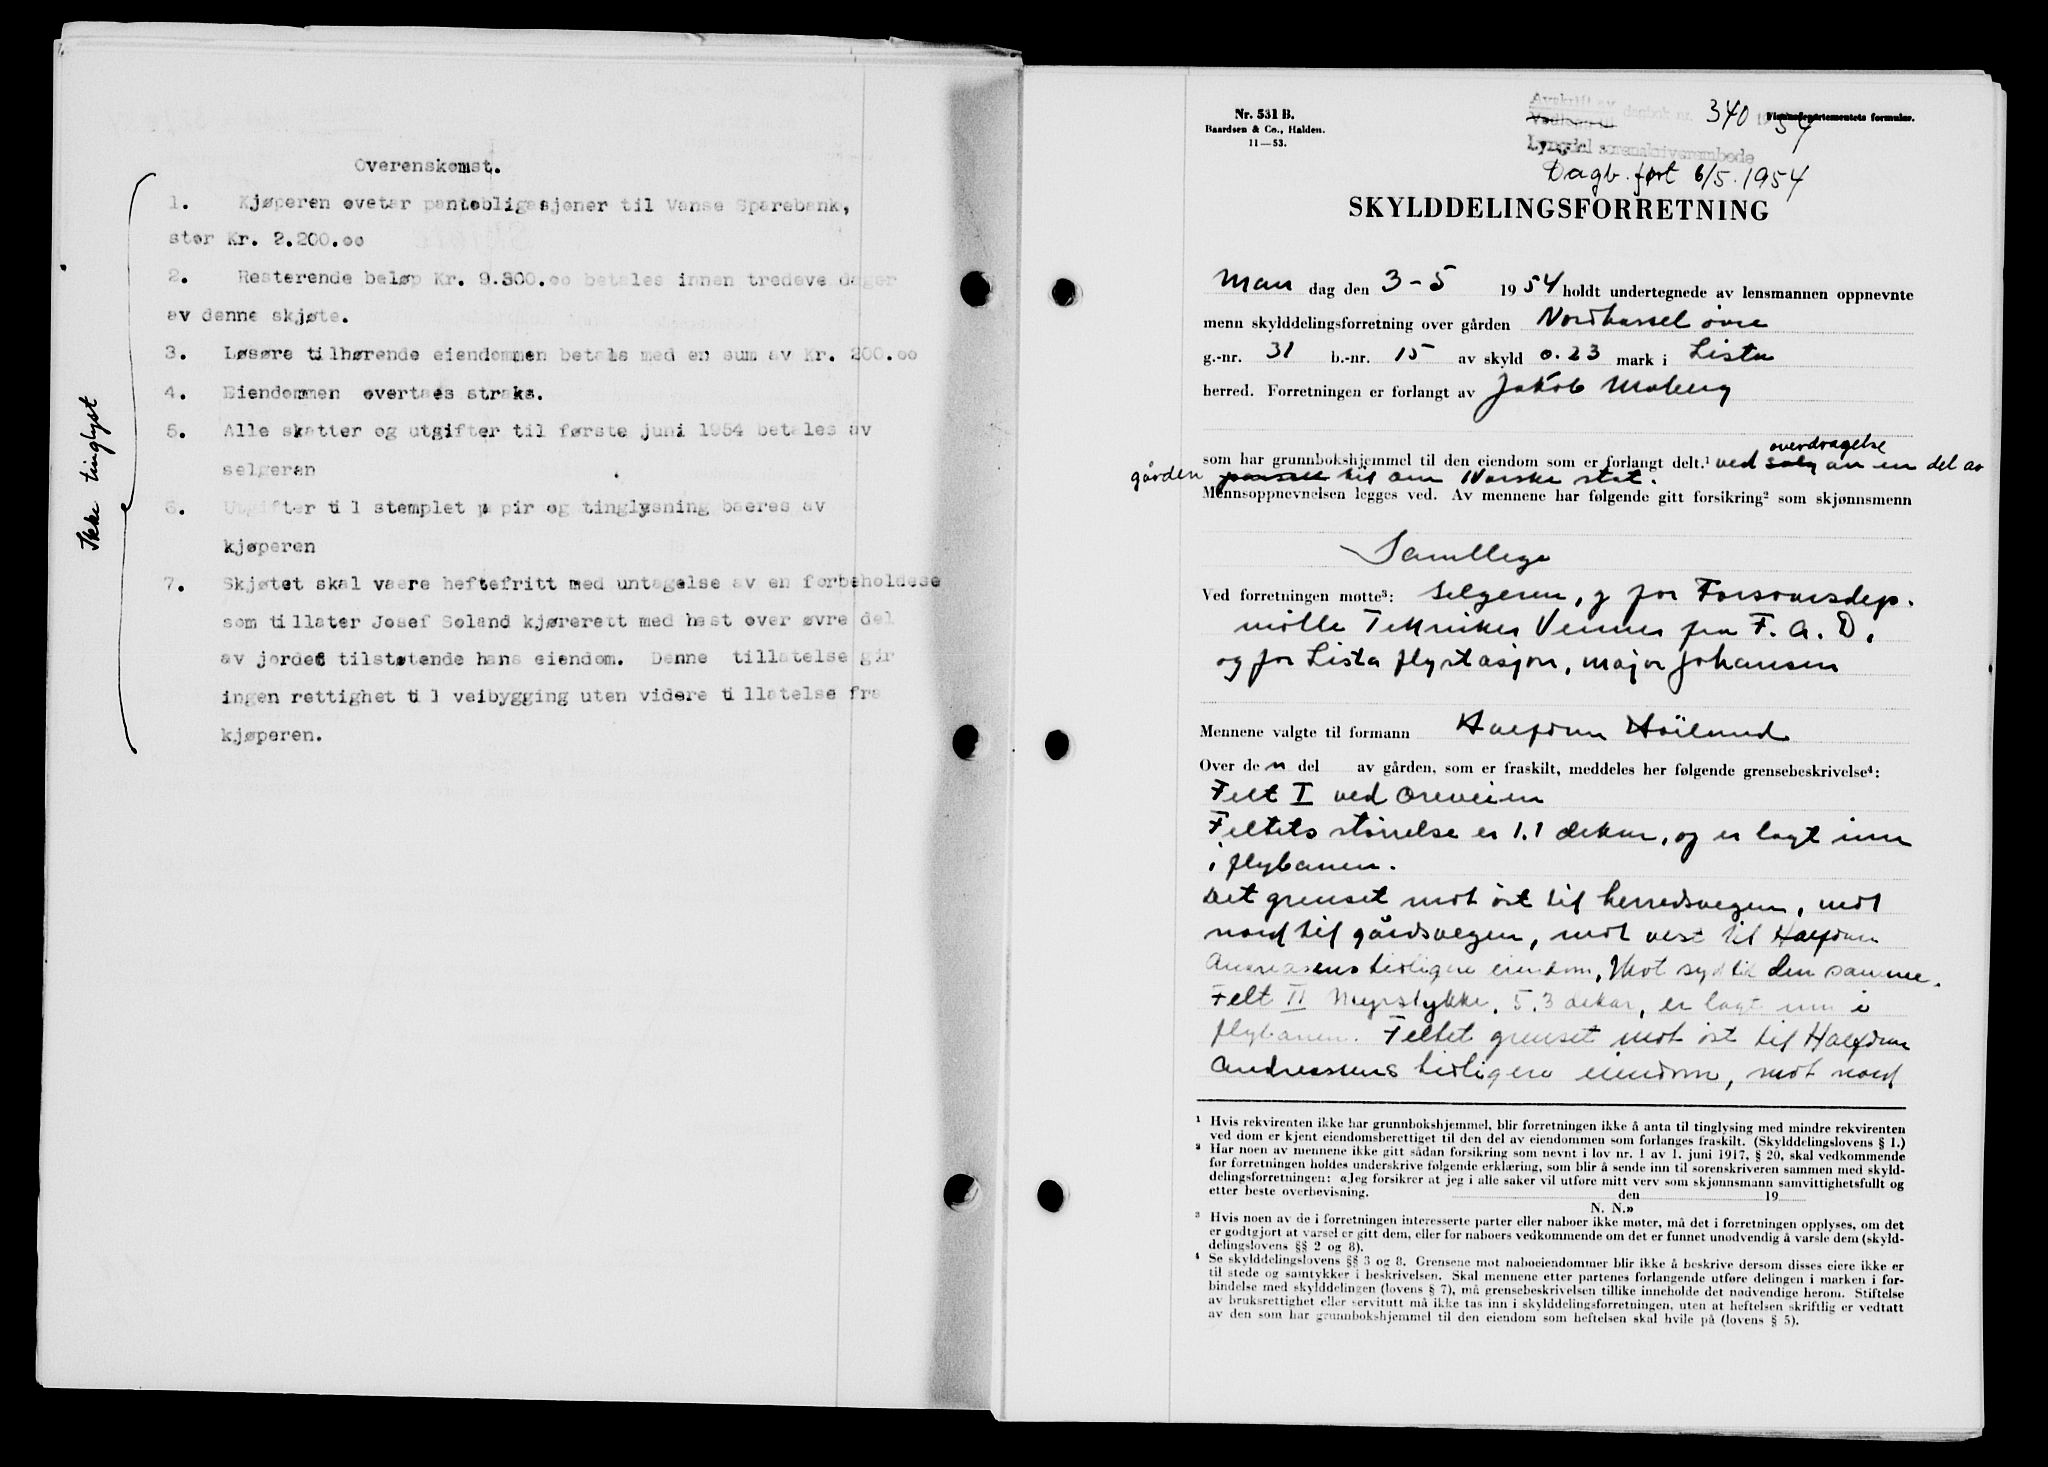 Overenskomst.
Ikke tinglyst
1. Kjøperen ovetar panteobligasjoner til Vanse Sparebank,
stor Kr. 2.200.oo
2. Resterende beløp Kr. 9.800.oo betales innen tredeve dager
av denne skjøte.
3. Løsøre tilhørende eiendommen betals med en sum av Kr. 200.oo
4. Eiendommen overtaes straks.
5. Alle skatter og utgifter til første juni 1954 betales av
selgeran
6. Utgifter til stemplet papir og tinglysning baeres av
kjøperen
7. Skjøtet skal vaere heftefritt med untagelse av en forbeholdese
som tillater Josef Soland kjørerett med hest over øvre del
av jordet tilstøtende hans eiendom. Denne tillatelse gir
ingen rettighet til veibygging uten videre tillatelse fra
kjøperen.
Nr. 531 B.
Baardsen & Co., Halden.
11—53.
Avskrift av
Vedlegg til dagbok nr. 340 1954
Finansdepartementets formular.
Lyngdal sorenskriverembede
Dagb. ført 6/5. 1954
SKYLDDELINGSFORRETNING
Man dag den 3-5 1954 holdt undertegnede av lensmannen oppnevnte
menn skylddelingsforretning over gården Nordhassel øvre
g.-nr. 31 b.-nr. 15 av skyld 0.23 mark i Lista
herred. Forretningen er forlangt av Jakob Moberg
overdragelse
som har grunnbokshjemmel til den eiendom som er forlangt delt.¹ ved salg av en del av
gården parsell til den Norske stat.
Mennsoppnevnelsen legges ved. Av mennene har følgende gitt forsikring² som skjønnsmenn
Samtlige
Ved forretningen møtte³: selgeren, og for Forsvarsdep.
møtte Tekniker Venner fra F.A.D.
og for Lista flystasjon, major Johansen
Mennene valgte til formann Halfdan Höiland
Over den del av gården, som er fraskilt, meddeles her følgende grensebeskrivelse⁴:
Felt I ved Oreveien
Feltets størrelse er 1.1 dekar, og er lagt inn
i flybanen.
Det grenset mot øst til herredsvegen, mot
nord til gårdsvegen, mot vest til Halfdan
Andreasens tidligere eiendom, Mot syd til den samme.
Felt II Myrstykke, 5.3 dekar, er lagt inn i
flybanen. Feltet grenset mot øst til Halfdan
Andreassens tidligere eiendom, mot nord
¹ Hvis rekvirenten ikke har grunnbokshjemmel, blir forretningen ikke å anta til tinglysing med mindre rekvirenten
ved dom er kjent eiendomsberettiget til den del av eiendommen som forlanges fraskilt. (Skylddelingslovens § 1.)
² Har noen av mennene ikke gitt sådan forsikring som nevnt i lov nr. 1 av 1. juni 1917, § 20, skal vedkommende
før forretningen holdes underskrive følgende erklæring, som blir å sende inn til sorenskriveren sammen med skyld-
delingsforretningen: «Jeg forsikrer at jeg i alle saker vil utføre mitt verv som skjønnsmann samvittighetsfullt og
etter beste overbevisning. den 19
N. N.»
³ Hvis noen av de i forretningen interesserte parter eller naboer ikke møter, må det i forretningen opplyses, om det
er godtgjort at varsel er gitt dem, eller for naboers vedkommende om det er funnet unødvendig å varsle dem (skyld-
delingslovens §§ 2 og 8).
⁴ Se skylddelingslovens §§ 3 og 8. Grensene mot naboeiendommer blir ikke å beskrive dersom disses eiere ikke er
til stede og samtykker i beskrivelsen. Skal mennene etter partenes forlangende utføre delingen i marken i for-
bindelse med skylddelingen (lovens § 7), må grensebeskrivelsen tillike inneholde det nødvendige herom. Stiftelse
av bruksrettighet eller servitutt må ikke tas inn i skylddelingsforretningen, uten at heftelsen skriftlig er vedtatt
av den som har grunnbokshjemmel til den eiendom som heftelsen skal hvile på (lovens § 5).